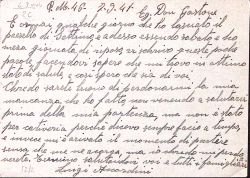 P.M. 45 - 2-9-41 Eg. Don Gaetano
È ormai qualche giorno che ho lasciato il
paesello di Settimo e adesso essendo sabato e di
mezza giornata di riposo, vi scrivo queste poche
parole facendovi sapere che mi trovo in ottimo
stato di salute, e così spero che sia di voi.
Che lo sarete buono di perdonarmi la mia
mancanza che ho fatto non venendo a salutarvi
prima della mia partenza, ma non è stato
per cattiveria perché dicevo sempre faccio a tempo
e invece mi è arrivato il momento di partire
senza che me ne accorga, ma ciò
Termino salutandovi voi e tutti i famigliari
Luigi